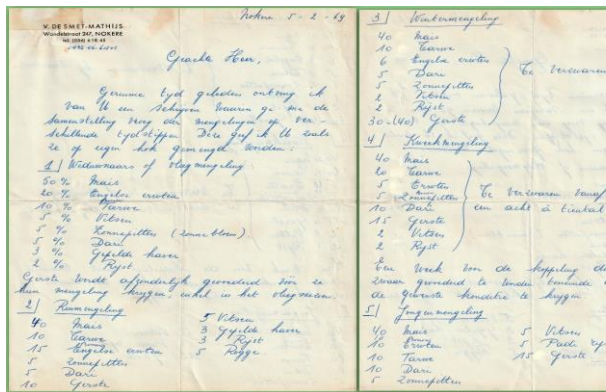 V. DE SMET-MATHIJS
Wandelstraat 247, NOKERE
Nokere 5-2-69
Geachte Heer,
Geruime tyd geleden ontving ik
van U een schryven waarin ge me de
samenstelling vroeg der mengelingen op ver-
schillende tydstippen Deze geef ik U zoals
ze op eigen hok gemengd worden:
1/ Weduwnaars of vliegmengeling
50 % Mais
20 % Engelse erwten
10 % Tarwe
5 % Vitsen
5 % Zonnepitten (zonnebloem)
5 % Dari
3 % Gepelde haver
2 % Ryst
Gerste wordt afzonderlijk
hun mengeling krygen, enkel in het vliegseizoen.
2/ Ruimengeling
40 Mais
10 Tarwe
15 Engelse erwten
5 Zonnepitten
5 Dari
10 Gerste
5 Vitsen
3 Gepelde haver
3 Ryst
5 Rogge
3/ Wintermengeling
40 Mais
10 Tarwe
6 Engelse erwten
5 Dari
5 Zonnepitten
2 Vitsen
2 Ryst
30-(40) Gerste
Te verwarren
4/ Kweekmengeling
40 Mais
20 Tarwe
5 Erwten
5 Zonnepitten
10 Dari
15 Gerste
2 Vitsen
2 Ryst
Te verwarren vanaf
een acht à tiental
Een week voor de koppeling
zwaar gevoederd te worden teneinde
de gewenste konditie te krygen.
5/ Jongenmengeling
40 Mais
10 Erwten
10 Tarwe
10 Dari
5 Zonnepitten
5 Vitsen
5 Padi
15 Gerste